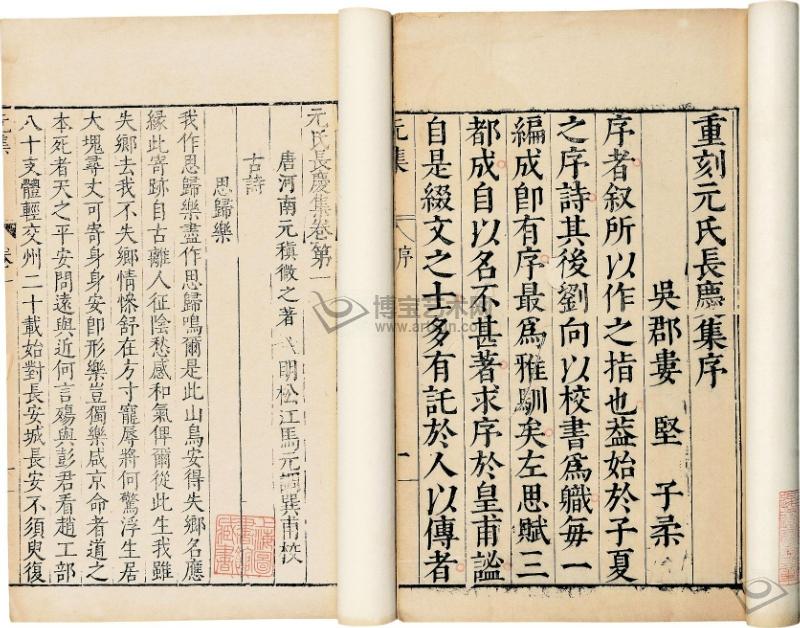 重刻元氏長慶集序
吳郡婁堅子柔
序者叙所以作之指也葢始於子夏
之序詩其後劉向以校書爲職每一
編成卽有序最爲雅馴矣左思賦三
都成自以名不甚著求序於皇甫謐
自是綴文之士多有託於人以傳者
元集
序
一
元氏長慶集卷第一
唐河南元稹微之著
明松江馬元調巽甫校
古詩
思歸樂
我作思歸樂盡作思歸鳴爾是此山鳥安得失鄉名應
緣此寄跡自古離人征陰愁感和氣俾爾從此生我雖
失鄉去我不失鄉情慘舒在方寸寵辱將何驚浮生居
大塊尋丈可寄身身安卽形樂豈獨樂咸京命者道之
本死者天之平安問遠與近何言殤與彭君看趙工部
八十支體輕交州二十載始對長安城長安不須臾復
元集
卷一
一
博宝艺术网